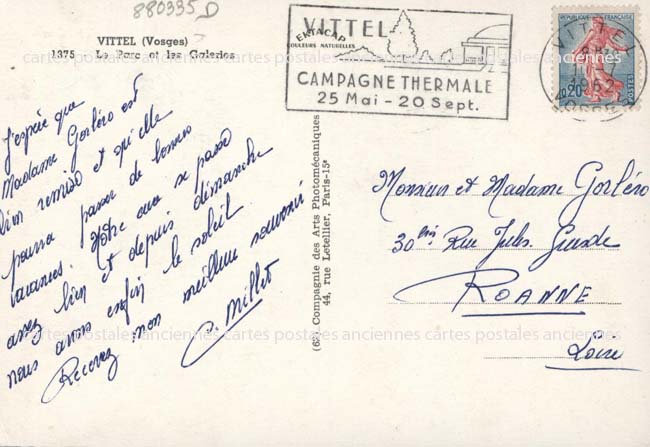 880335 D
VITTEL (Vosges)
1375 Le Parc et les Galeries
EKTACAP
COULEURS NATURELLES
VITTEL
CAMPAGNE THERMALE
25 Mai - 20 Sept.
REPUBLIQUE FRANÇAISE
0,20
POSTES
VITTEL
1962
VOSGES
J'espère que
Madame Gorléro est
bien remise et qu'elle
pourra passer de bonnes
vacances. Notre cure se passe
assez bien et depuis dimanche
nous avons enfin le soleil
Recevez mon meilleur souvenir
C. Millet
(69). Compagnie des Arts Photomécaniques
44, rue Letellier, Paris-15e
Monsieur et Madame Gorléro
30 bis Rue Jules Guesde
ROANNE
Loire
cartes postales anciennes cartes postales anciennes cartes postales anciennes